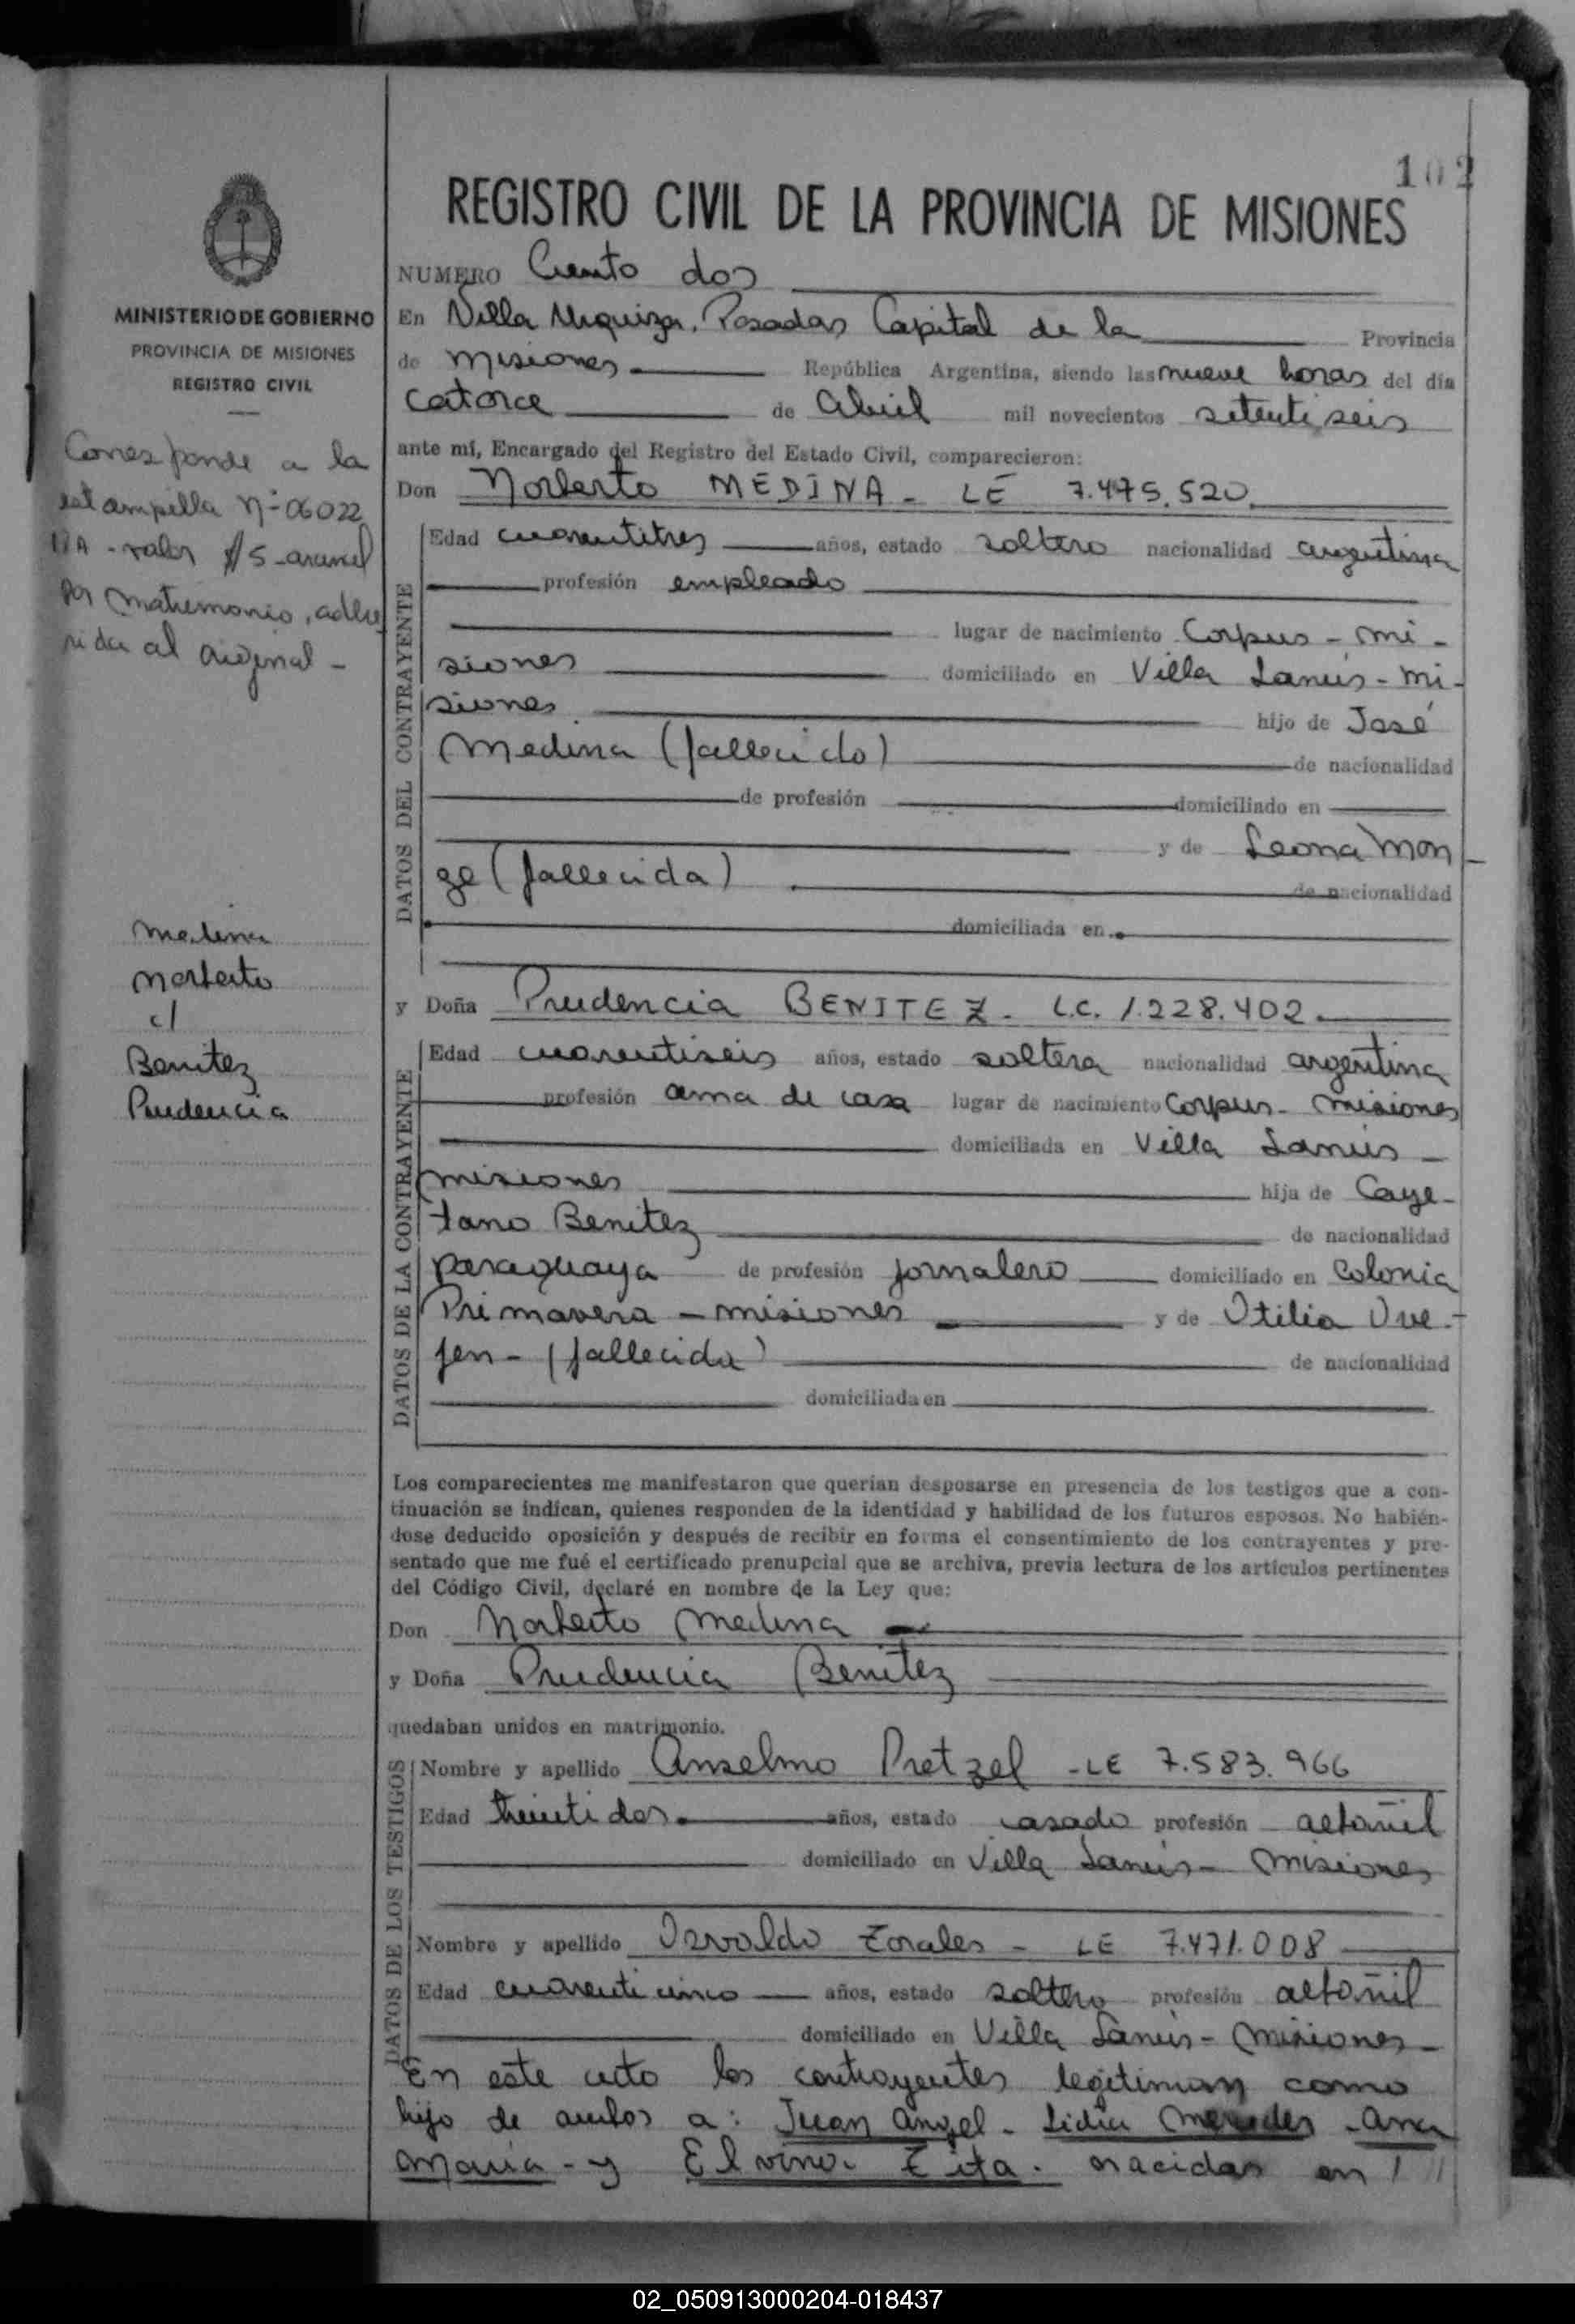 102
REGISTRO CIVIL DE LA PROVINCIA DE MISIONES
NUMERO Ciento dos
MINISTERIO DE GOBIERNO
PROVINCIA DE MISIONES
REGISTRO CIVIL
Corresponde a la
estampilla Nº 06022
- valor $ 5 - arancel
por matrimonio, adhe
rida al original -
Medina
Norberto
c/
Benitez
Prudencia
En Villa Urquiza, Posadas Capital de la Provincia
de Misiones República Argentina, siendo las nueve horas del día
catorce de Abril mil novecientos setentiseis
ante mí, Encargado del Registro del Estado Civil, comparecieron:
Don Norberto MEDINA - LE 7.475.520
DATOS DEL CONTRAYENTE
Edad cuarentitres años, estado soltero nacionalidad argentina
profesión empleado
lugar de nacimiento Corpus - Mi -
siones domiciliado en Villa Lanús - Mi -
siones hijo de José
Medina (fallecido) de nacionalidad
de profesión domiciliado en
y de Leona Mon -
ge (fallecida) de nacionalidad
domiciliada en
y Doña Prudencia BENITEZ - L.C. 1.228.402
DATOS DE LA CONTRAYENTE
Edad cuarentiseis años, estado soltera nacionalidad argentina
profesión ama de casa lugar de nacimiento Corpus - Misiones
domiciliada en Villa Lanús -
Misiones hija de Caye -
tano Benitez de nacionalidad
paraguaya de profesión jornalero domiciliado en Colonia
Primavera - Misiones y de Otilia Ove -
jen - (fallecida) de nacionalidad
domiciliada en
Los comparecientes me manifestaron que querían desposarse en presencia de los testigos que a con-
tinuación se indican, quienes responden de la identidad y habilidad de los futuros esposos. No habién-
dose deducido oposición y después de recibir en forma el consentimiento de los contrayentes y pre-
sentado que me fué el certificado prenupcial que se archiva, previa lectura de los artículos pertinentes
del Código Civil, declaré en nombre de la Ley que:
Don Norberto Medina
y Doña Prudencia Benitez
quedaban unidos en matrimonio.
DATOS DE LOS TESTIGOS
Nombre y apellido Anselmo Pretzel - LE 7.583.966
Edad treintidos años, estado casado profesión albañil
domiciliado en Villa Lanús - Misiones
Nombre y apellido Osvaldo Zorales - LE 7.471.008
Edad cuarenticinco años, estado soltero profesión albañil
domiciliado en Villa Lanús - Misiones -
En este acto los contrayentes legitiman como
hijo de ambos a: Juan Angel - Lidia Mercedes - Ana
María - y Elvino Zita - nacidas en
02_050913000204-018437